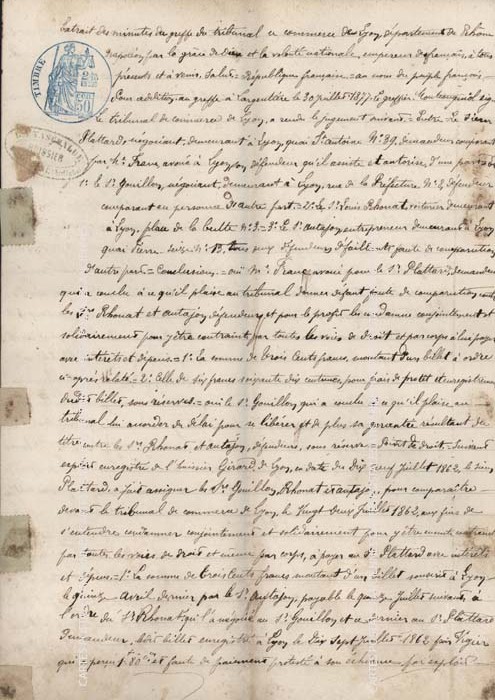 Extrait des minutes du greffe du tribunal de commerce de Lyon, département du Rhône
TIMBRE
Napoléon, par la grâce de dieu et la volonté nationale, empereur des français, à tous
présents et à venir, Salut = République française = au nom du peuple français =
Pour addition au greffe à Largentière le 30 juillet 1877. Le greffier
le tribunal de commerce de Lyon, a rendu le jugement suivant = Entre Le Sieur
Plattard, négociant, demeurant à Lyon, quai St antoine N° 39, demandeur comparant
par Me Franc, avoué à Lyon, défendeur, qu'il assiste et autorise, d'une part et
1° le Sr Gouillon, négociant, demeurant à Lyon, rue de la Préfecture N° 2, défendeur
comparant en personne d'autre part = 2° Le Sr Louis Rhonat, voiturier demeurant
à Lyon, place de la butte N° 3 = 3° Le Sr Autajoy, entrepreneur demeurant à Lyon
quai Pierre Scize N° 13, tous deux défendeurs défaillants faute de comparution
d'autre part = Conclusions = oui Me Franc avoué pour le Sr Plattard, demandeur
qui a conclu à ce qu'il plaise au tribunal donner défaut faute de comparution contre
les Srs Rhonat et autajoy, défendeurs, et pour le profit les condamner conjointement et
solidairement pour y être contraint par toutes les voies de droit et par corps à lui payer
avec intérêts et dépens = 1° La somme de trois cents francs, montant d'un billet à ordre
ci-après relaté = 2° Celle de six francs soixante dix centimes, pour frais de protêt et enregistrement
dudit billet, sous réserves = oui le Sr Gouillon qui a conclu à ce qu'il plaise au
tribunal lui accorder du délai pour se libérer et de plus sa garantie résultant du
titre contre les Srs Rhonat et autajoy, défendeurs, sous réserve = Point de droit = Suivant
exploit enregistré de l'huissier Girard, de Lyon, en date du dix neuf juillet 1862, le sieur
Plattard, a fait assigner les Srs Gouillon, Rhonat et autajoy pour comparaître
devant le tribunal de commerce de Lyon, le vingt deux juillet 1862, aux fins de
s'entendre condamner conjointement et solidairement pour y être ensuite contraint
par toutes les voies de droit et même par corps, à payer au Sr Plattard avec intérêts
et dépens = 1° La somme de trois cents francs montant d'un billet souscrit à Lyon
le quinze avril dernier par le Sr Autajoy, payable le quinze juillet suivant, à
l'ordre du Sr Rhonat qui l'a négocié au Sr Gouillon et ce dernier au Sr Plattard
demandeur, ledit billet enregistré à Lyon le dix sept juillet 1862 par Vigier
qui perçu 1f 80 ces et faute de paiement protesté à son échéance par exploit